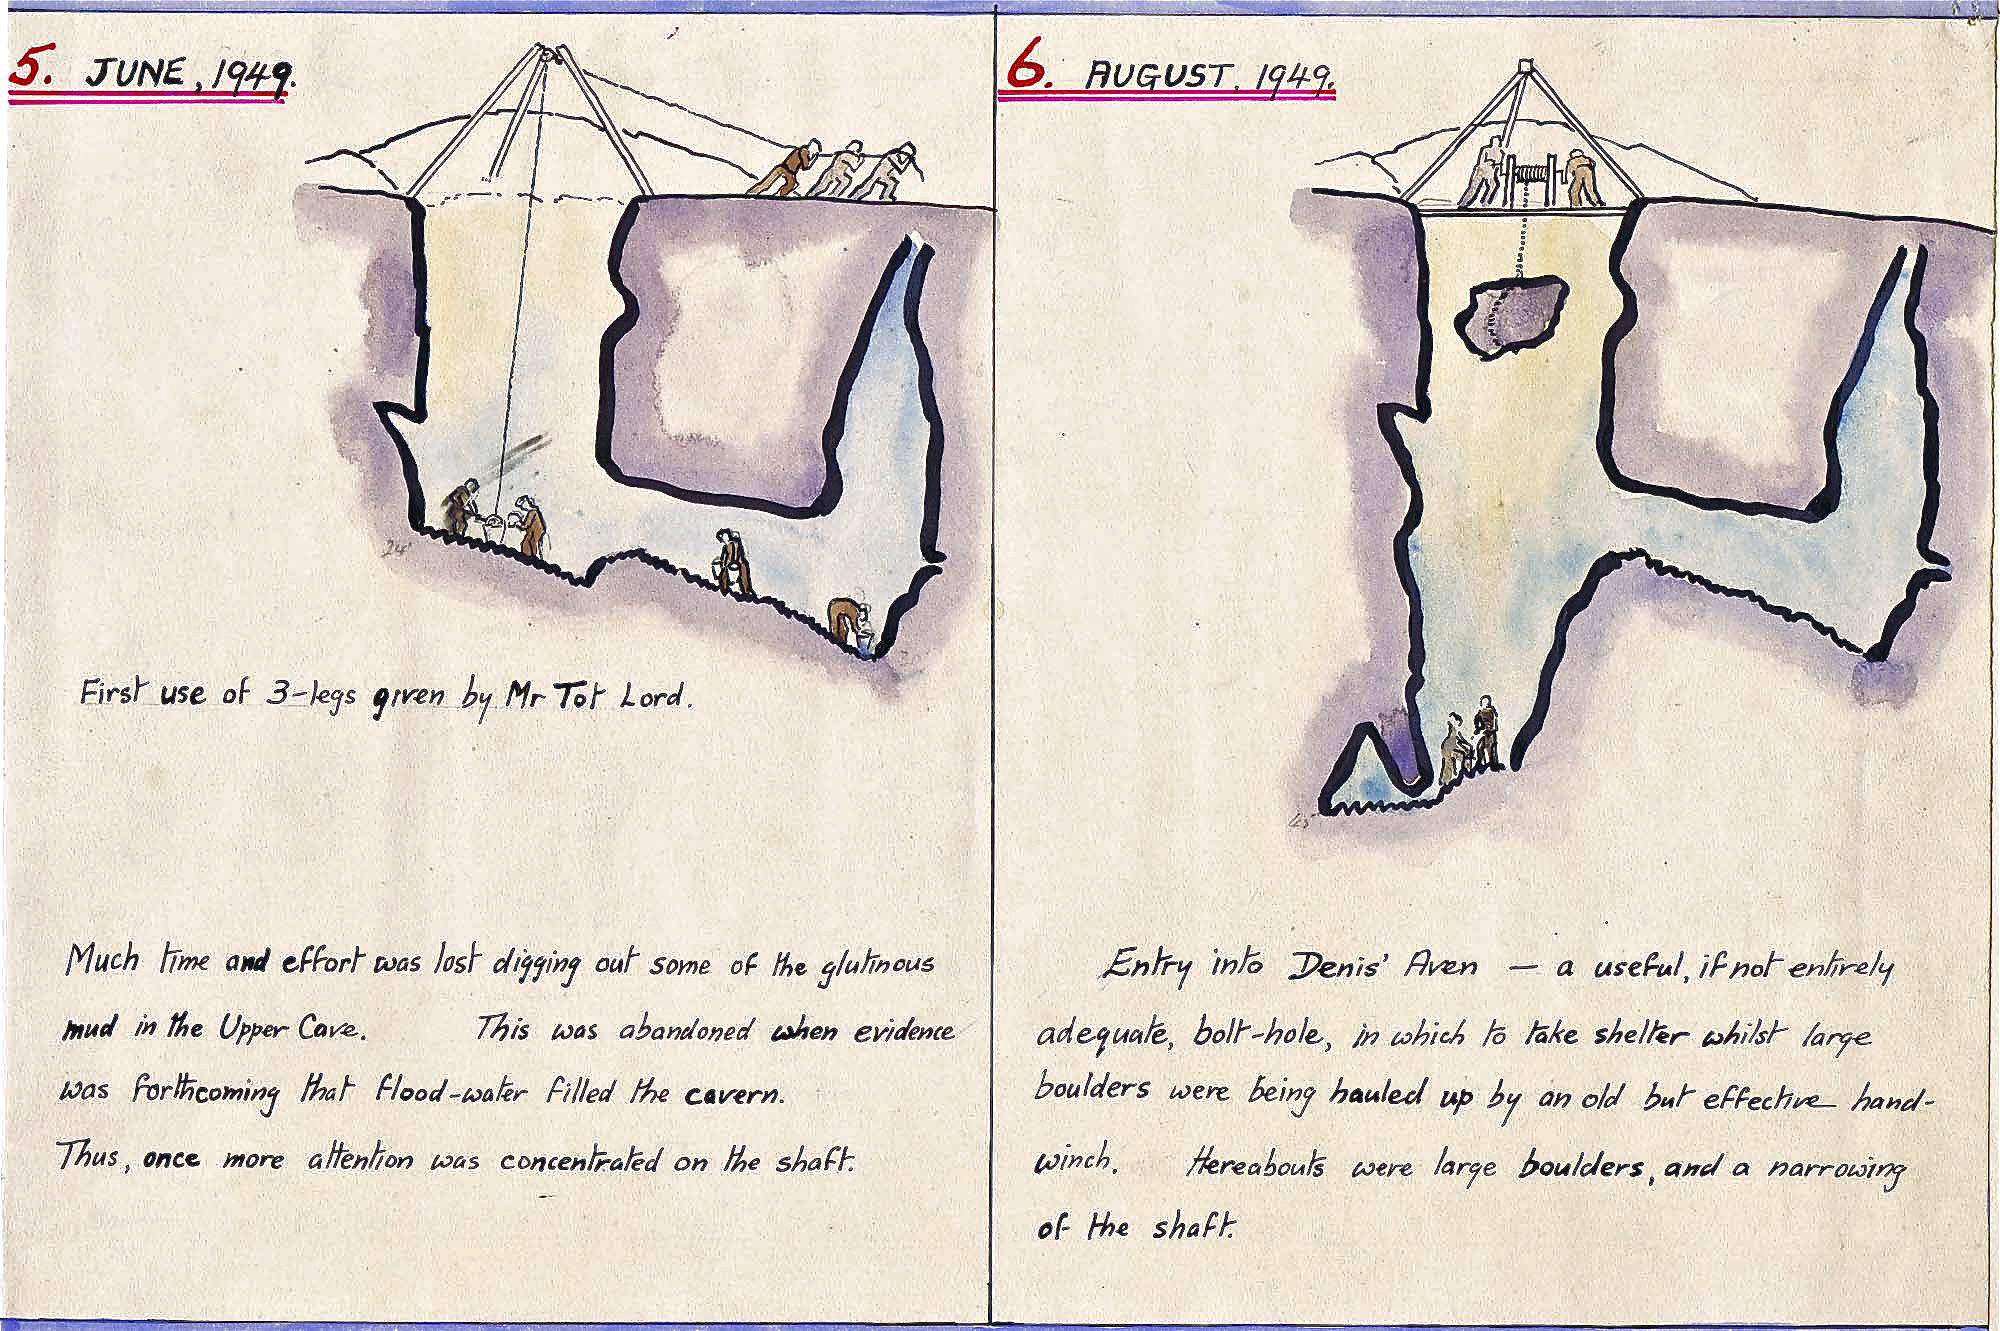 5. JUNE, 1949.
24'
First use of 3-legs given by Mr Tot Lord.
Much time and effort was lost digging out some of the glutinous
mud in the Upper Cave. This was abandoned when evidence
was forthcoming that flood-water filled the cavern.
Thus, once more attention was concentrated on the shaft.
6. AUGUST, 1949.
Entry into Denis' Aven — a useful, if not entirely
adequate, bolt-hole, in which to take shelter whilst large
boulders were being hauled up by an old but effective hand-
winch. Hereabouts were large boulders, and a narrowing
of the shaft.